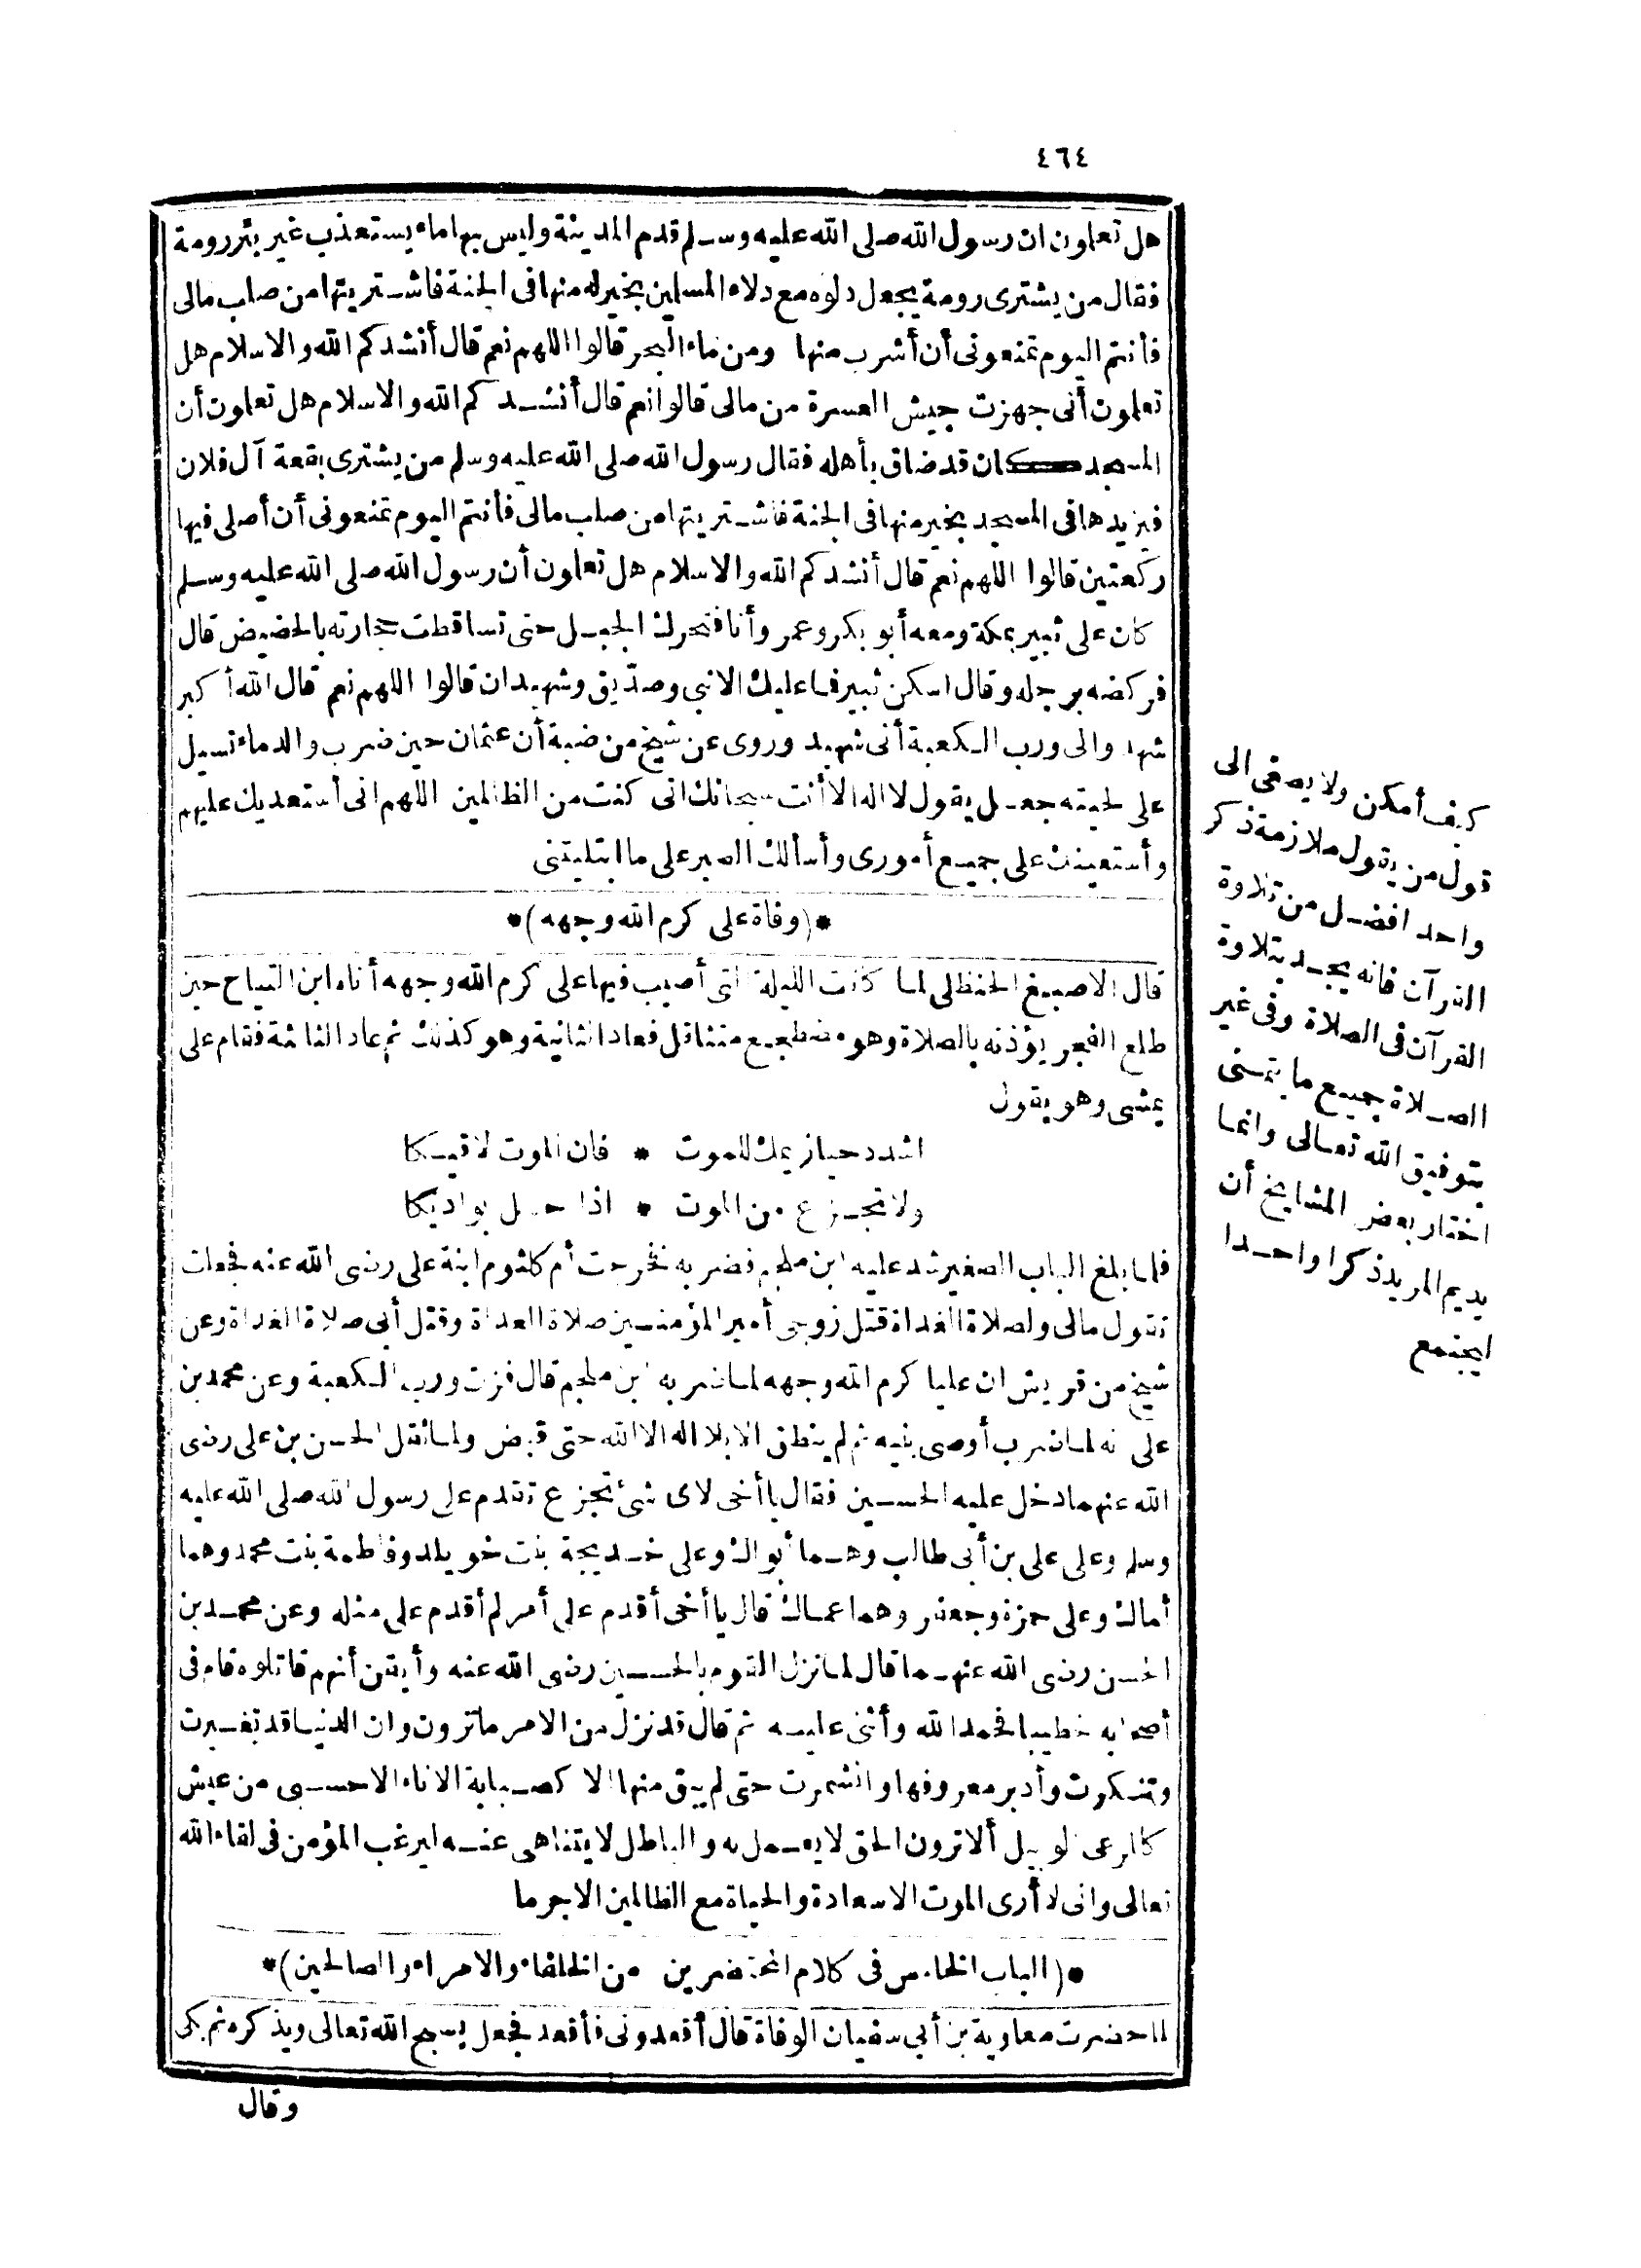 ٤٦٤
هل تعلمون ان رسول الله صلى الله عليه وسلم قدم المدينة وليس بها ماء يستعذب غير بئر رومة
فقال من يشترى رومة يجعل دلوه مع دلاء المسلمين بخير له منها فى الجنة فاشتريتها من صلب مالى
فأنتم اليوم تمنعونى أن أشرب منها ومن ماء البحر قالوا اللهم نعم قال أنشدكم الله والاسلام هل
تعلمون أنى جهزت جيش العسرة من مالى قالوا نعم قال أنشدكم الله والاسلام هل تعلمون أن
المسجد كان قد ضاق بأهله فقال رسول الله صلى الله عليه وسلم من يشترى بقعة آل فلان
فيزيدها فى المسجد بخير منها فى الجنة فاشتريتها من صلب مالى فأنتم اليوم تمنعونى أن أصلى فيها
ركعتين قالوا اللهم نعم قال أنشدكم الله والاسلام هل تعلمون أن رسول الله صلى الله عليه وسلم
كان على ثبير بمكة ومعه أبو بكر وعمر وأنا فتحرك الجبل حتى تساقطت حجارته بالحضيض قال
فركضه برجله وقال اسكن ثبير فما عليك الا نبى وصدّيق وشهيدان قالوا اللهم نعم قال الله أكبر
شهدوا لى ورب الكعبة أنى شهيد وروى عن شيخ من ضبة أن عثمان حين ضرب والدماء تسيل
على لحيته جعل يقول لا اله الا أنت سبحانك انى كنت من الظالمين اللهم انى أستعديك عليهم
وأستعينك على جميع أمورى وأسألك الصبر على ما ابتليتنى
*(وفاة على كرم الله وجهه)*
قال الاصبغ الحنظلى لما كانت الليلة التى أصيب فيها على كرم الله وجهه أتاه ابن التياح حين
طلع الفجر يؤذنه بالصلاة وهو مضطجع متثاقل فعاد الثانية وهو كذلك ثم عاد الثالثة فقام على
يمشى وهو يقول
اشدد حيازيمك للموت * فان الموت لاقيكا
ولا تجزع من الموت * اذا حل بواديكا
فلما بلغ الباب الصغير شد عليه ابن ملجم فضربه فخرجت أم كلثوم ابنة على رضى الله عنه فجعلت
تقول مالى ولصلاة الغداة قتل زوجى أمير المؤمنين صلاة الغداة وقتل أبى صلاة الغداة وعن
شيخ من قريش ان عليا كرم الله وجهه لما ضربه ابن ملجم قال فزت ورب الكعبة وعن محمد بن
على نه لما ضرب أوصى بنيه ثم لم ينطق الا بلا اله الا الله حتى قبض ولما ثقل الحسن بن على رضى
الله عنهما دخل عليه الحسين فقال يا أخى لاى شئ تجزع تقدم على رسول الله صلى الله عليه
وسلم وعلى على بن أبى طالب وهما أبواك وعلى خديجة بنت خويلد وفاطمة بنت محمد وهما
أماك وعلى حمزة وجعفر وهما عماك قال يا أخى أقدم على أمر لم أقدم على مثله وعن محمد بن
الحسن رضى الله عنهما قال لما نزل القوم بالحسين رضى الله عنه وأيقن أنهم قاتلوه قام فى
أصحابه خطيبا فحمد الله وأثنى عليه ثم قال قد نزل من الامر ما ترون وان الدنيا قد تغيرت
وتنكرت وأدبر معروفها وانشمرت حتى لم يبق منها الا كصبابة الاناء الا حسبى من عيش
كالمرعى الوبيل ألا ترون الحق لا يعمل به والباطل لا يتناهى عنه ليرغب المؤمن فى لقاء الله
تعالى وانى لا أرى الموت الا سعادة والحياة مع الظالمين الا جرما
*(الباب الخامس فى كلام المحتضرين من الخلفاء والامراء والصالحين)*
لما حضرت معاوية بن أبي سفيان الوفاة قال أقعدونى فأقعد فجعل يسبح الله تعالى ويذكره ثم بكى
وقال
كيف أمكن ولا يصغى الى
قول من يقول ملازمة ذكر
واحد افضل من تلاوة
القرآن فانه يجد بتلاوة
القرآن فى الصلاة وفى غير
الصلاة جميع ما يتمنى
بتوفيق الله تعالى وانما
اختار بعض المشايخ أن
يديم المريد ذكرا واحدا
ليجتمع